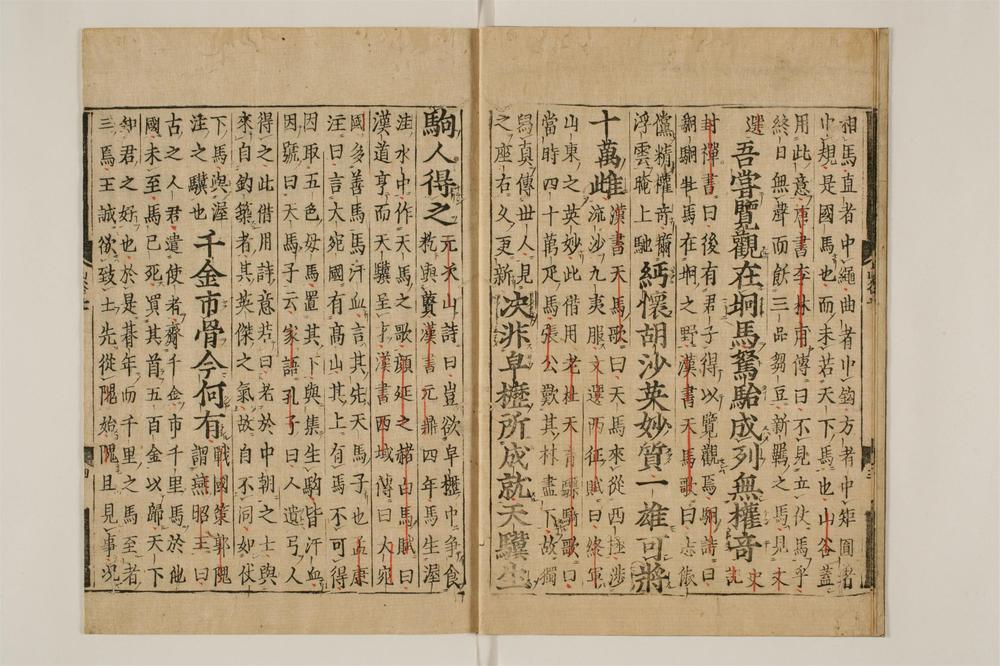 相馬直者中繩曲者中鉤方者中矩圓者
中規是國馬也而未若天下馬也山谷蓋
用此意唐書李林甫傳曰不見立仗馬乎
終日無聲而飫三品芻豆新羈之馬見文
選
吾嘗覽觀在坰馬駑駘成列無權奇
史記
封禪書曰後有君子得以覽觀焉駉詩曰
駉駉牡馬在坰之野漢書天馬歌曰志俶
儻精權奇籋
浮雲晻上馳
緬懷胡沙英妙質一雄可將
十萬雌
漢書天馬歌曰天馬來從西極涉
流沙九夷服文選西征賦曰終軍
山東之英妙此借用老杜天育驃騎歌曰
當時四十萬疋馬張公歎其材盡下故獨
寫真傳世人見
之座右久更新
決非皁櫪所成就天驥生
駒人得之
元次山詩曰豈欲皁櫪中爭食
麧與藖漢書元鼎四年馬生渥
洼水中作天馬之歌顏延之赭白馬賦曰
漢道亨而天驥呈才漢書西域傳曰大宛
國多善馬馬汗血言其先天馬子也孟康
注曰言大宛國有高山其上有馬不可得
因取五色母馬置其下與集生駒皆汗血
因號曰天馬子云家語孔子曰人遺弓人
得之此借用詩意若曰老於中朝之士與
來自釣築者其英傑之氣故自不同如伏
下馬與渥
洼之驥也
千金市骨今何有
戰國策郭隗
謂燕昭王曰
古之人君遣使者齎千金市千里馬於他
國未至馬已死買其首五百金以歸天下
知君之好也於是朞年而千里之馬至者
三焉王誠欲致士先從隗始隗且見事况